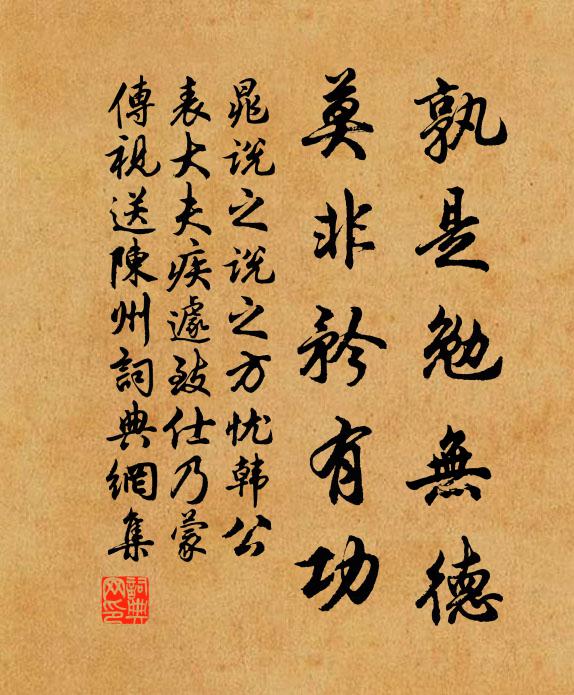 孰是勉無德
莫非矜有功
晁説之説之方忧韩公
表大夫疾遽致仕乃蒙
傳視送陳州詞典網集
詞典網印